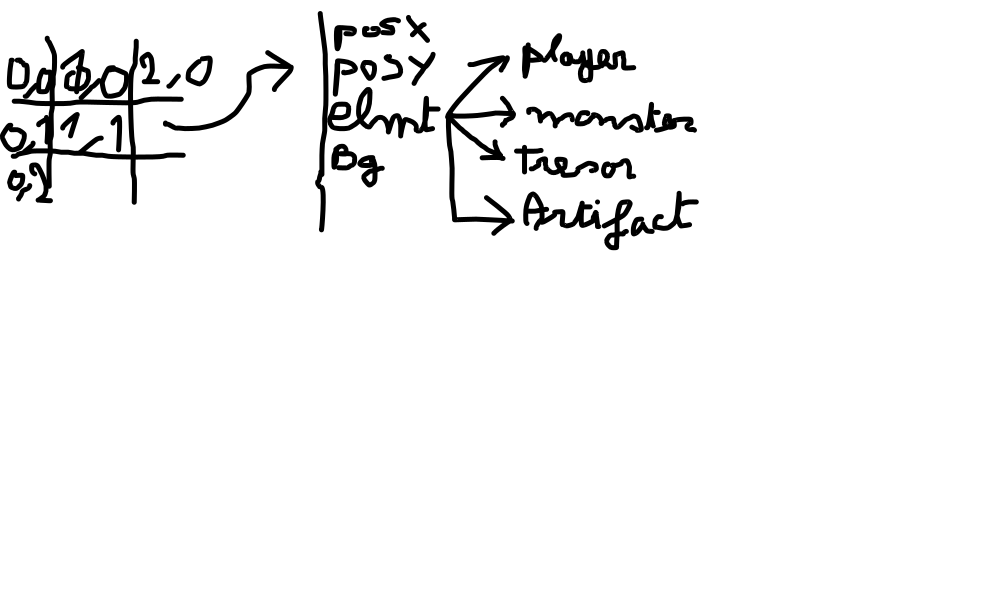 0,0 1,0 2,0
0,1 1,1
0,2
posX
posY
elmt
Bg
player
monster
tresor
Artifact